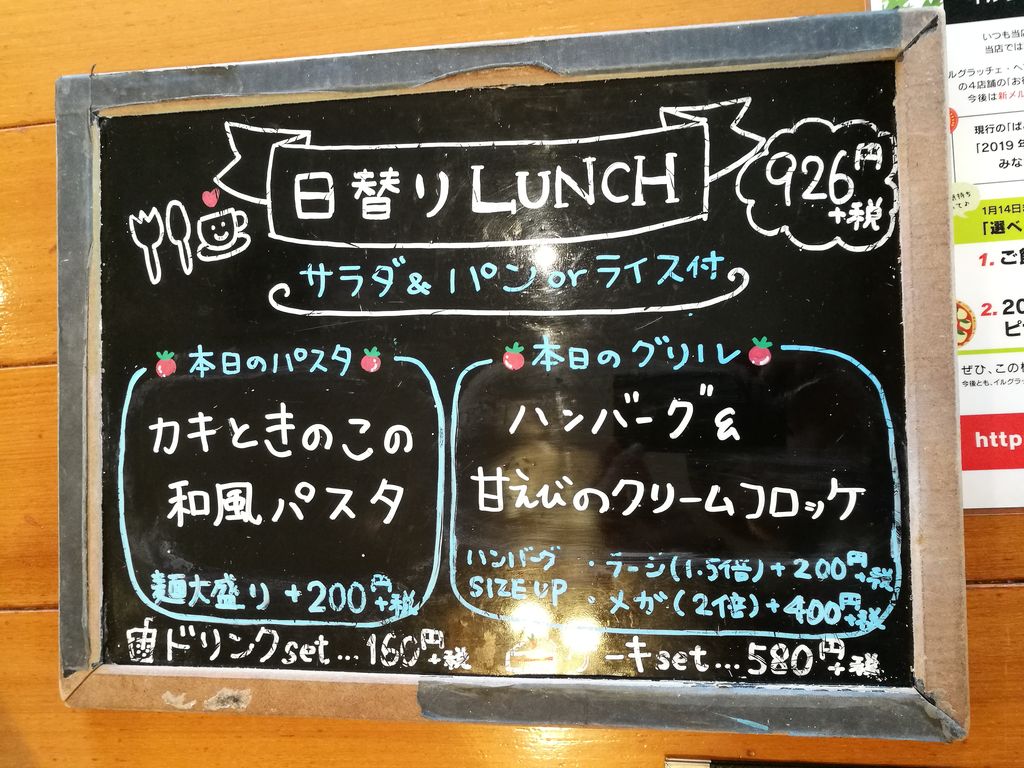 日替りLUNCH
926円
+税
サラダ& パン or ライス付
本日のパスタ
カキときのこの
和風パスタ
麺大盛り +200円+税
本日のグリル
ハンバーグ&
甘えびのクリームコロッケ
ハンバーグ
SIZE UP
・ラージ(1.5倍)+200円+税
・メガ(2倍)+400円+税
ドリンクset...160円+税
ーキset...580円+税
いつも当
当店では
ルグラッチェ・ヘ
の4店舗の「お
今後は新メル
現行の「ぱ
「2019年
みな
1月14日
「選べ
1. ご
2. 20
ピ
ぜひ、この
今後とも、イルグラッ
http